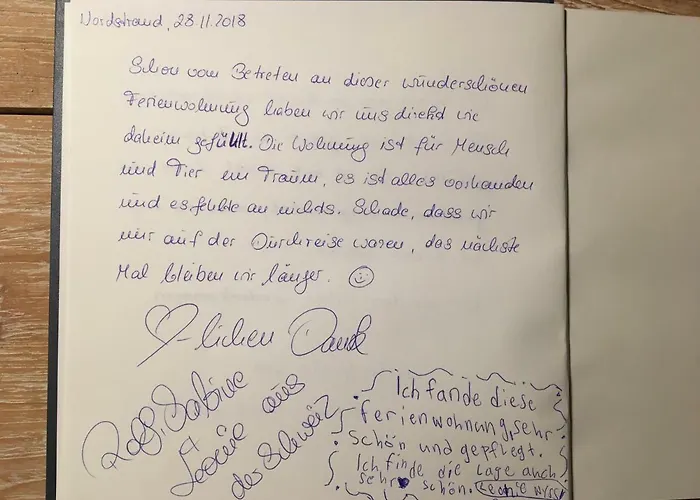 Nordstrand, 28.11.2018
Schon vom Betreten an dieser wunderschönen
Ferienwohnung haben wir uns direkt wie
daheim gefühlt. Die Wohnung ist für Mensch
und Tier ein Traum, es ist alles vorhanden
und es fehlte an nichts. Schade, dass wir
nur auf der Durchreise waren, das nächste
Mal bleiben wir länger. ☺
♡-lichen Dank
Rolf, Sabine
aus
der Schweiz
Ich fande diese
ferienwohnung sehr
schön und gepflegt.
Ich finde die Lage auch
sehr ♥ schön.